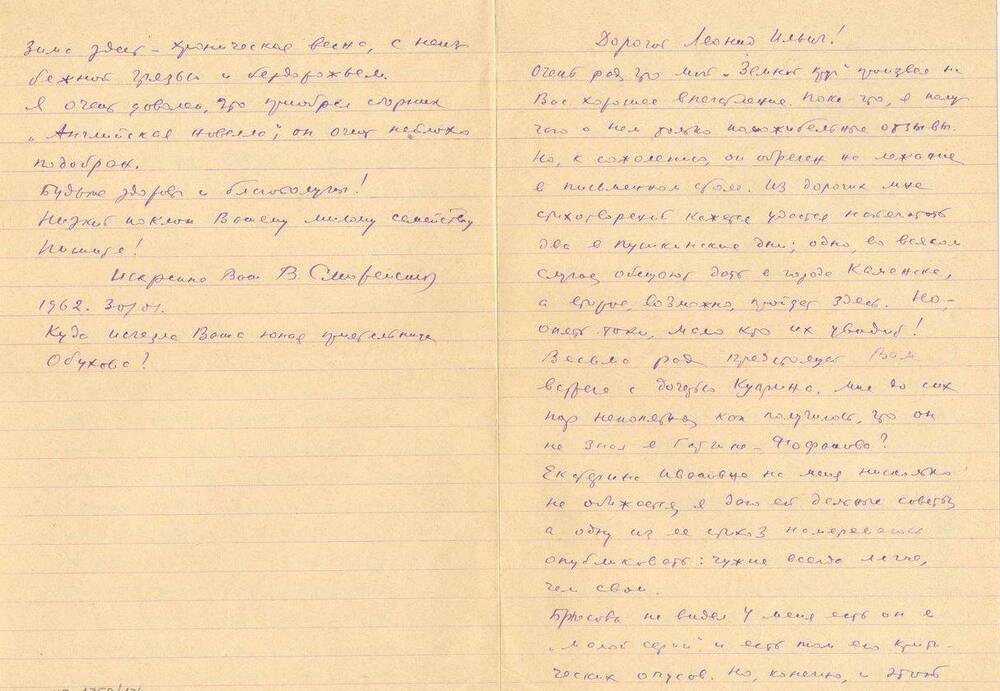 Дорогой Леонид Ильич!
Очень рад что мой „Земной круг" произвел на
Вас хорошее впечатление. Пока-что, я полу
чаю о нем только положительные отзывы.
Но, к сожалению, он обречен на лежание
в письменном столе. Из дорогих мне
стихотворений кажется удастся напечатать
два в Пушкинские дни; одно во всяком
случае обещают дать в городе Каменске,
а второе, возможно, пройдет здесь. Но-
опять таки, мало кто их увидит!
Весьма рад предстоящей Вам
встрече с дочерью Куприна. Мне до сих
пор непонятно как получилось, что он
не знал в Гатчине Фофанова?
Екатерина Ивановна на меня нисколько
не обижается, я даю ей дельные советы
а одну из ее намереваюсь
опубликовать: чужие всегда легче,
чем свои.
Брюсова не видел У меня есть он в
„малой серии" и есть том его крити-
ческих опусов. Но, конечно, и этот
Зима здесь – хроническая весна, с неиз
бежной грязью и бездорожьем.
Я очень доволен, что приобрел сборник
„Английская новелла", он очень неплохо
подобран.
Будьте здоровы и благополучны!
Низкий поклон Вашему милому семейству
Пишите!
Искренно Ваш В Смиренский
1962. 30/01.
Куда исчезла Ваша юная приятельница
Обухова?